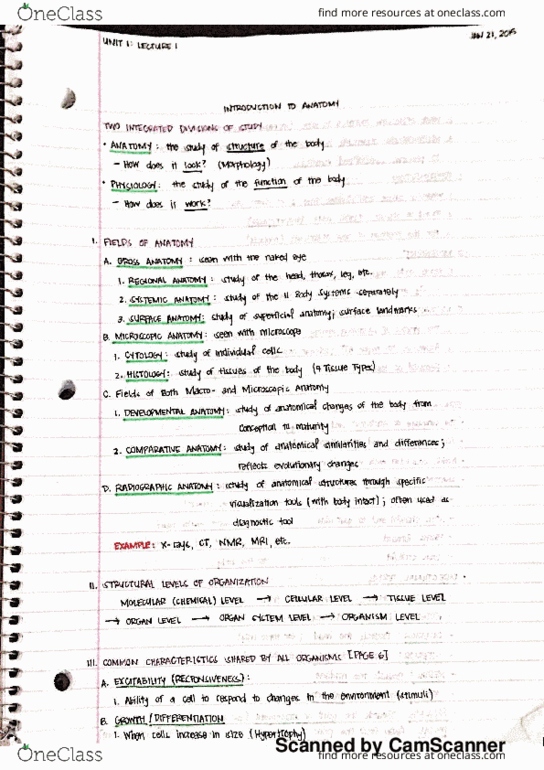 OneClass
find more resources at oneclass.com
UNIT 1: LECTURE 1
JAN 21, 2015
INTRODUCTION TO ANATOMY
TWO INTEGRATED DIVISIONS OF STUDY
• ANATOMY: the study of structure of the body
– How does it look? (Morphology)
• PHYSIOLOGY: the study of the function of the body
– How does it work?
I. FIELDS OF ANATOMY
A. GROSS ANATOMY: seen with the naked eye
1. REGIONAL ANATOMY: study of the head, thorax, leg, etc.
2. SYSTEMIC ANATOMY: study of the 11 Body Systems separately
3. SURFACE ANATOMY: study of superficial anatomy; surface landmarks
B. MICROSCOPIC ANATOMY: seen with microscope
1. CYTOLOGY: study of individual cells
2. HISTOLOGY: study of tissues of the body (4 Tissue Types)
C. Fields of Both Macro- and Microscopic Anatomy
1. DEVELOPMENTAL ANATOMY: study of anatomical changes of the body from
conception to maturity
2. COMPARATIVE ANATOMY: study of anatomical similarities and differences;
reflects evolutionary changes
D. RADIOGRAPHIC ANATOMY: study of anatomical structures through specific
visualization tools (with body intact); often used as
diagnostic tool
EXAMPLE: X-rays, CT, NMR, MRI, etc.
II. STRUCTURAL LEVELS OF ORGANIZATION
MOLECULAR (CHEMICAL) LEVEL → CELLULAR LEVEL → TISSUE LEVEL
→ ORGAN LEVEL → ORGAN SYSTEM LEVEL → ORGANISM LEVEL
III. COMMON CHARACTERISTICS SHARED BY ALL ORGANISMS [PAGE 6]
A. EXCITABILITY (RESPONSIVENESS):
1. Ability of a cell to respond to changes in the environment (stimuli)
B. GROWTH / DIFFERENTIATION
1. When cells increase in size (Hypertrophy)
Scanned by CamScanner
OneClass
find more resources at oneclass.com